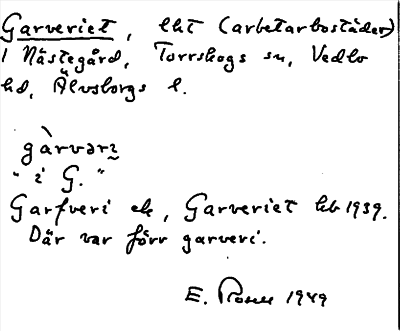 Garveriet, lht (arbetarbostäder)
i Nästegård, Torrskogs sn, Vedbo
hd, Älvsborgs l.
gàrvəri
" i G. "
Garfveri ek, Garveriet hb 1939.
Där var förr garveri.
E. 1949